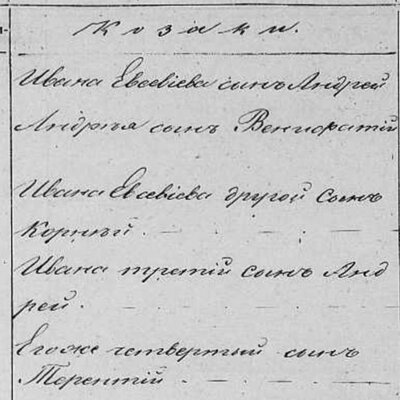 Козаки.
Ивана Евсевіева сынъ Андрей
Андрея сынъ Венифатій
Ивана Евсевіева другой сынъ
Корнѣй.
Ивана третій сынъ Анд
рей.
Егоже четвертый сынъ
Терентій